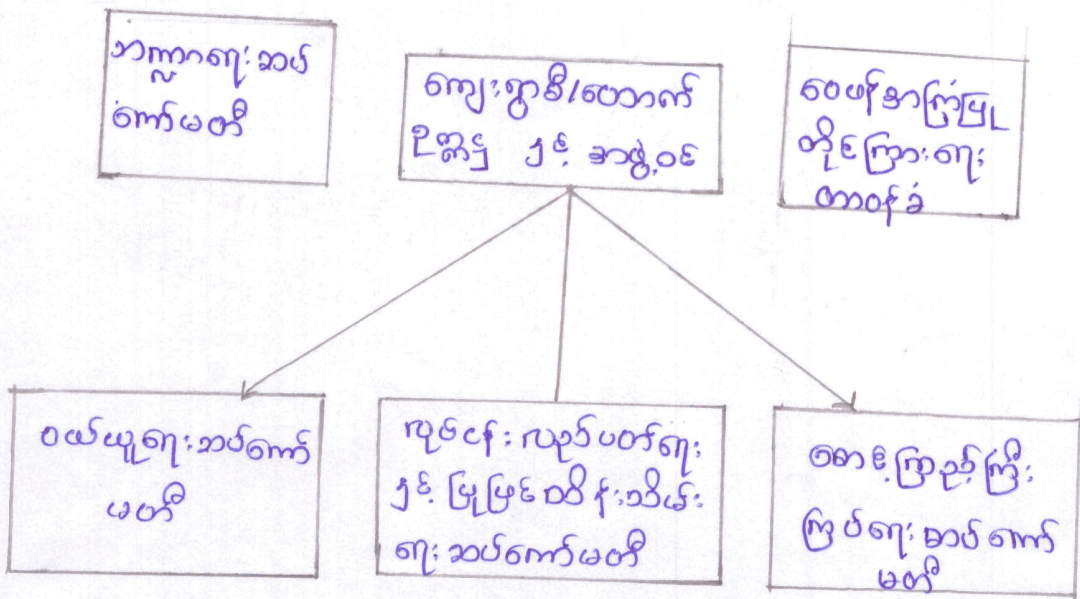 ဘဏ္ဍာရေးဆပ်
ကော်မတီ
ကျေးရွာစီ/ထောက်
ဥက္ကဋ္ဌ နှင့် အဖွဲ့ဝင်
ဝေဖန်အကြံပြု
တိုင်ကြားရေး
တာဝန်ခံ
ဝယ်ယူရေးဆပ်ကော်
မတီ
လုပ်ငန်းလည်ပတ်ရေး
နှင့် ပြုပြင်ထိန်းသိမ်း
ရေးဆပ်ကော်မတီ
စောင့်ကြည့်ကြီး
ကြပ်ရေးဆပ်ကော်
မတီ